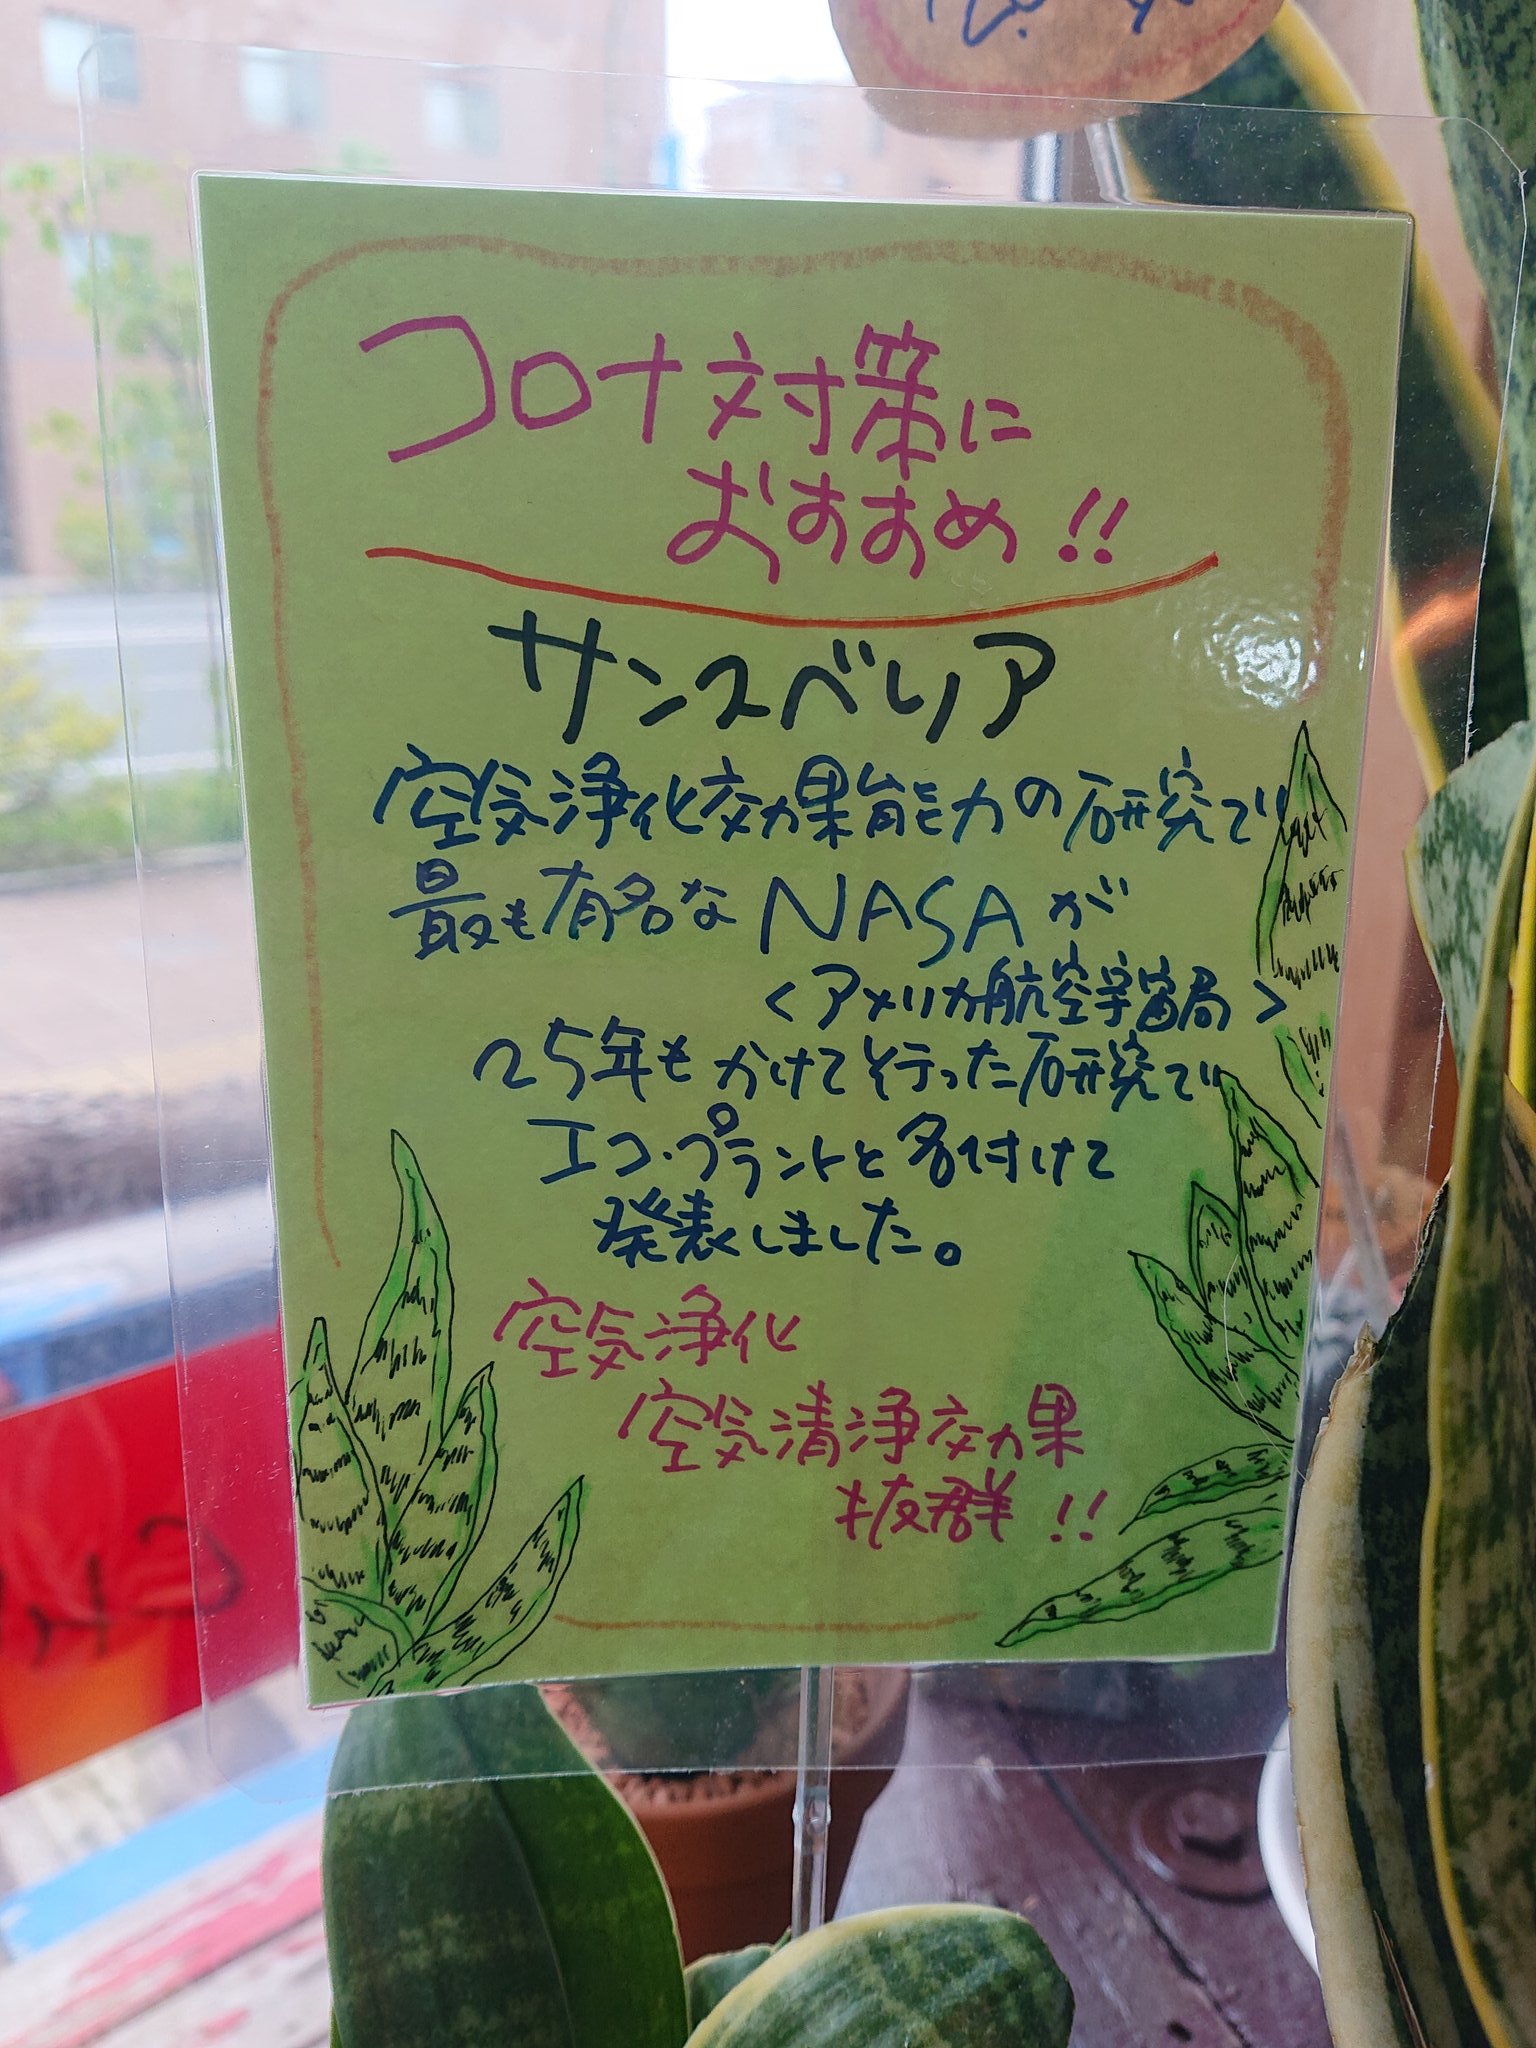 コロナ対策に
おすすめ!!
サンスベリア
空気浄化効果能力の研究で
最も有名なNASAが
<アメリカ航空宇宙局>
25年もかけて行った研究で
エコ・プラントと名付けて
発表しました。
空気浄化
空気清浄効果
抜群!!